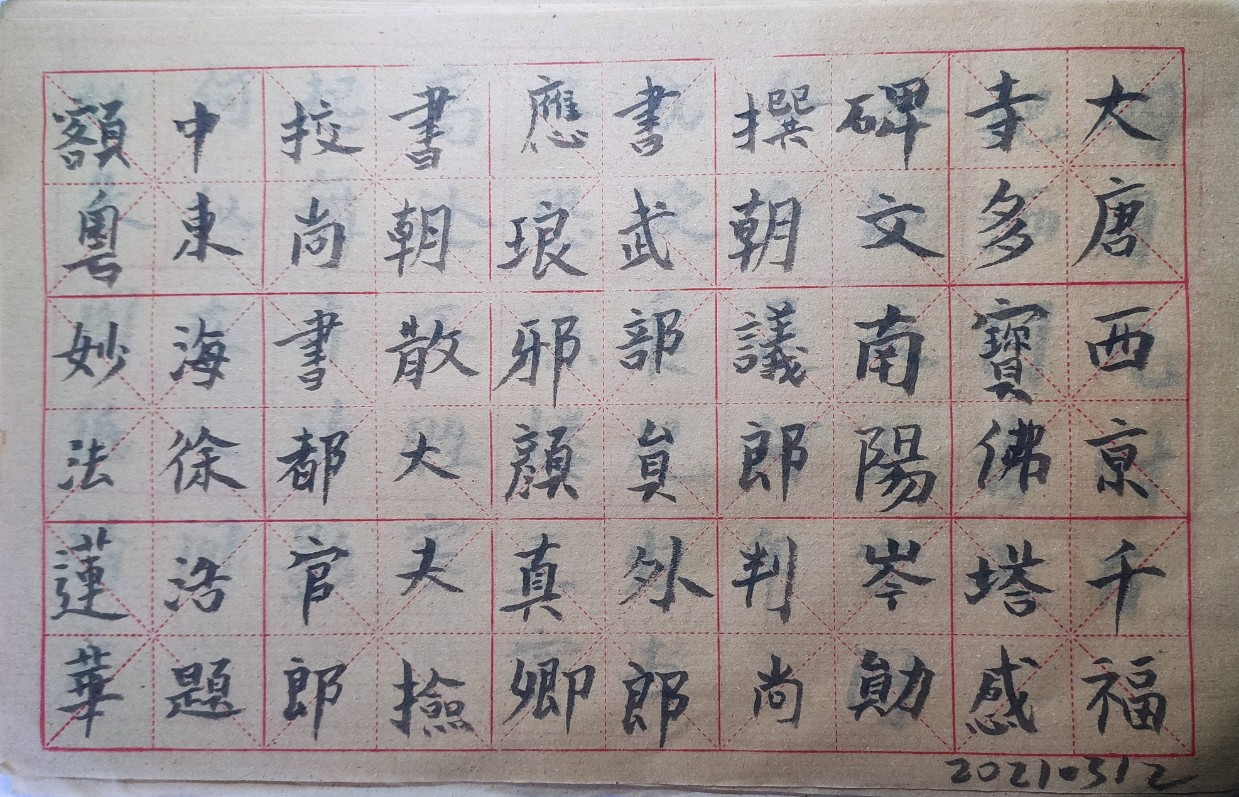 大唐西京千福
寺多寶佛塔感
碑文南陽岑勛
撰朝議郎判尚
書武部貟外郎
應琅邪顔真卿
書朝散大夫撿
挍尚書都官郎
中東海徐浩題
額粵妙法蓮華
2021.312